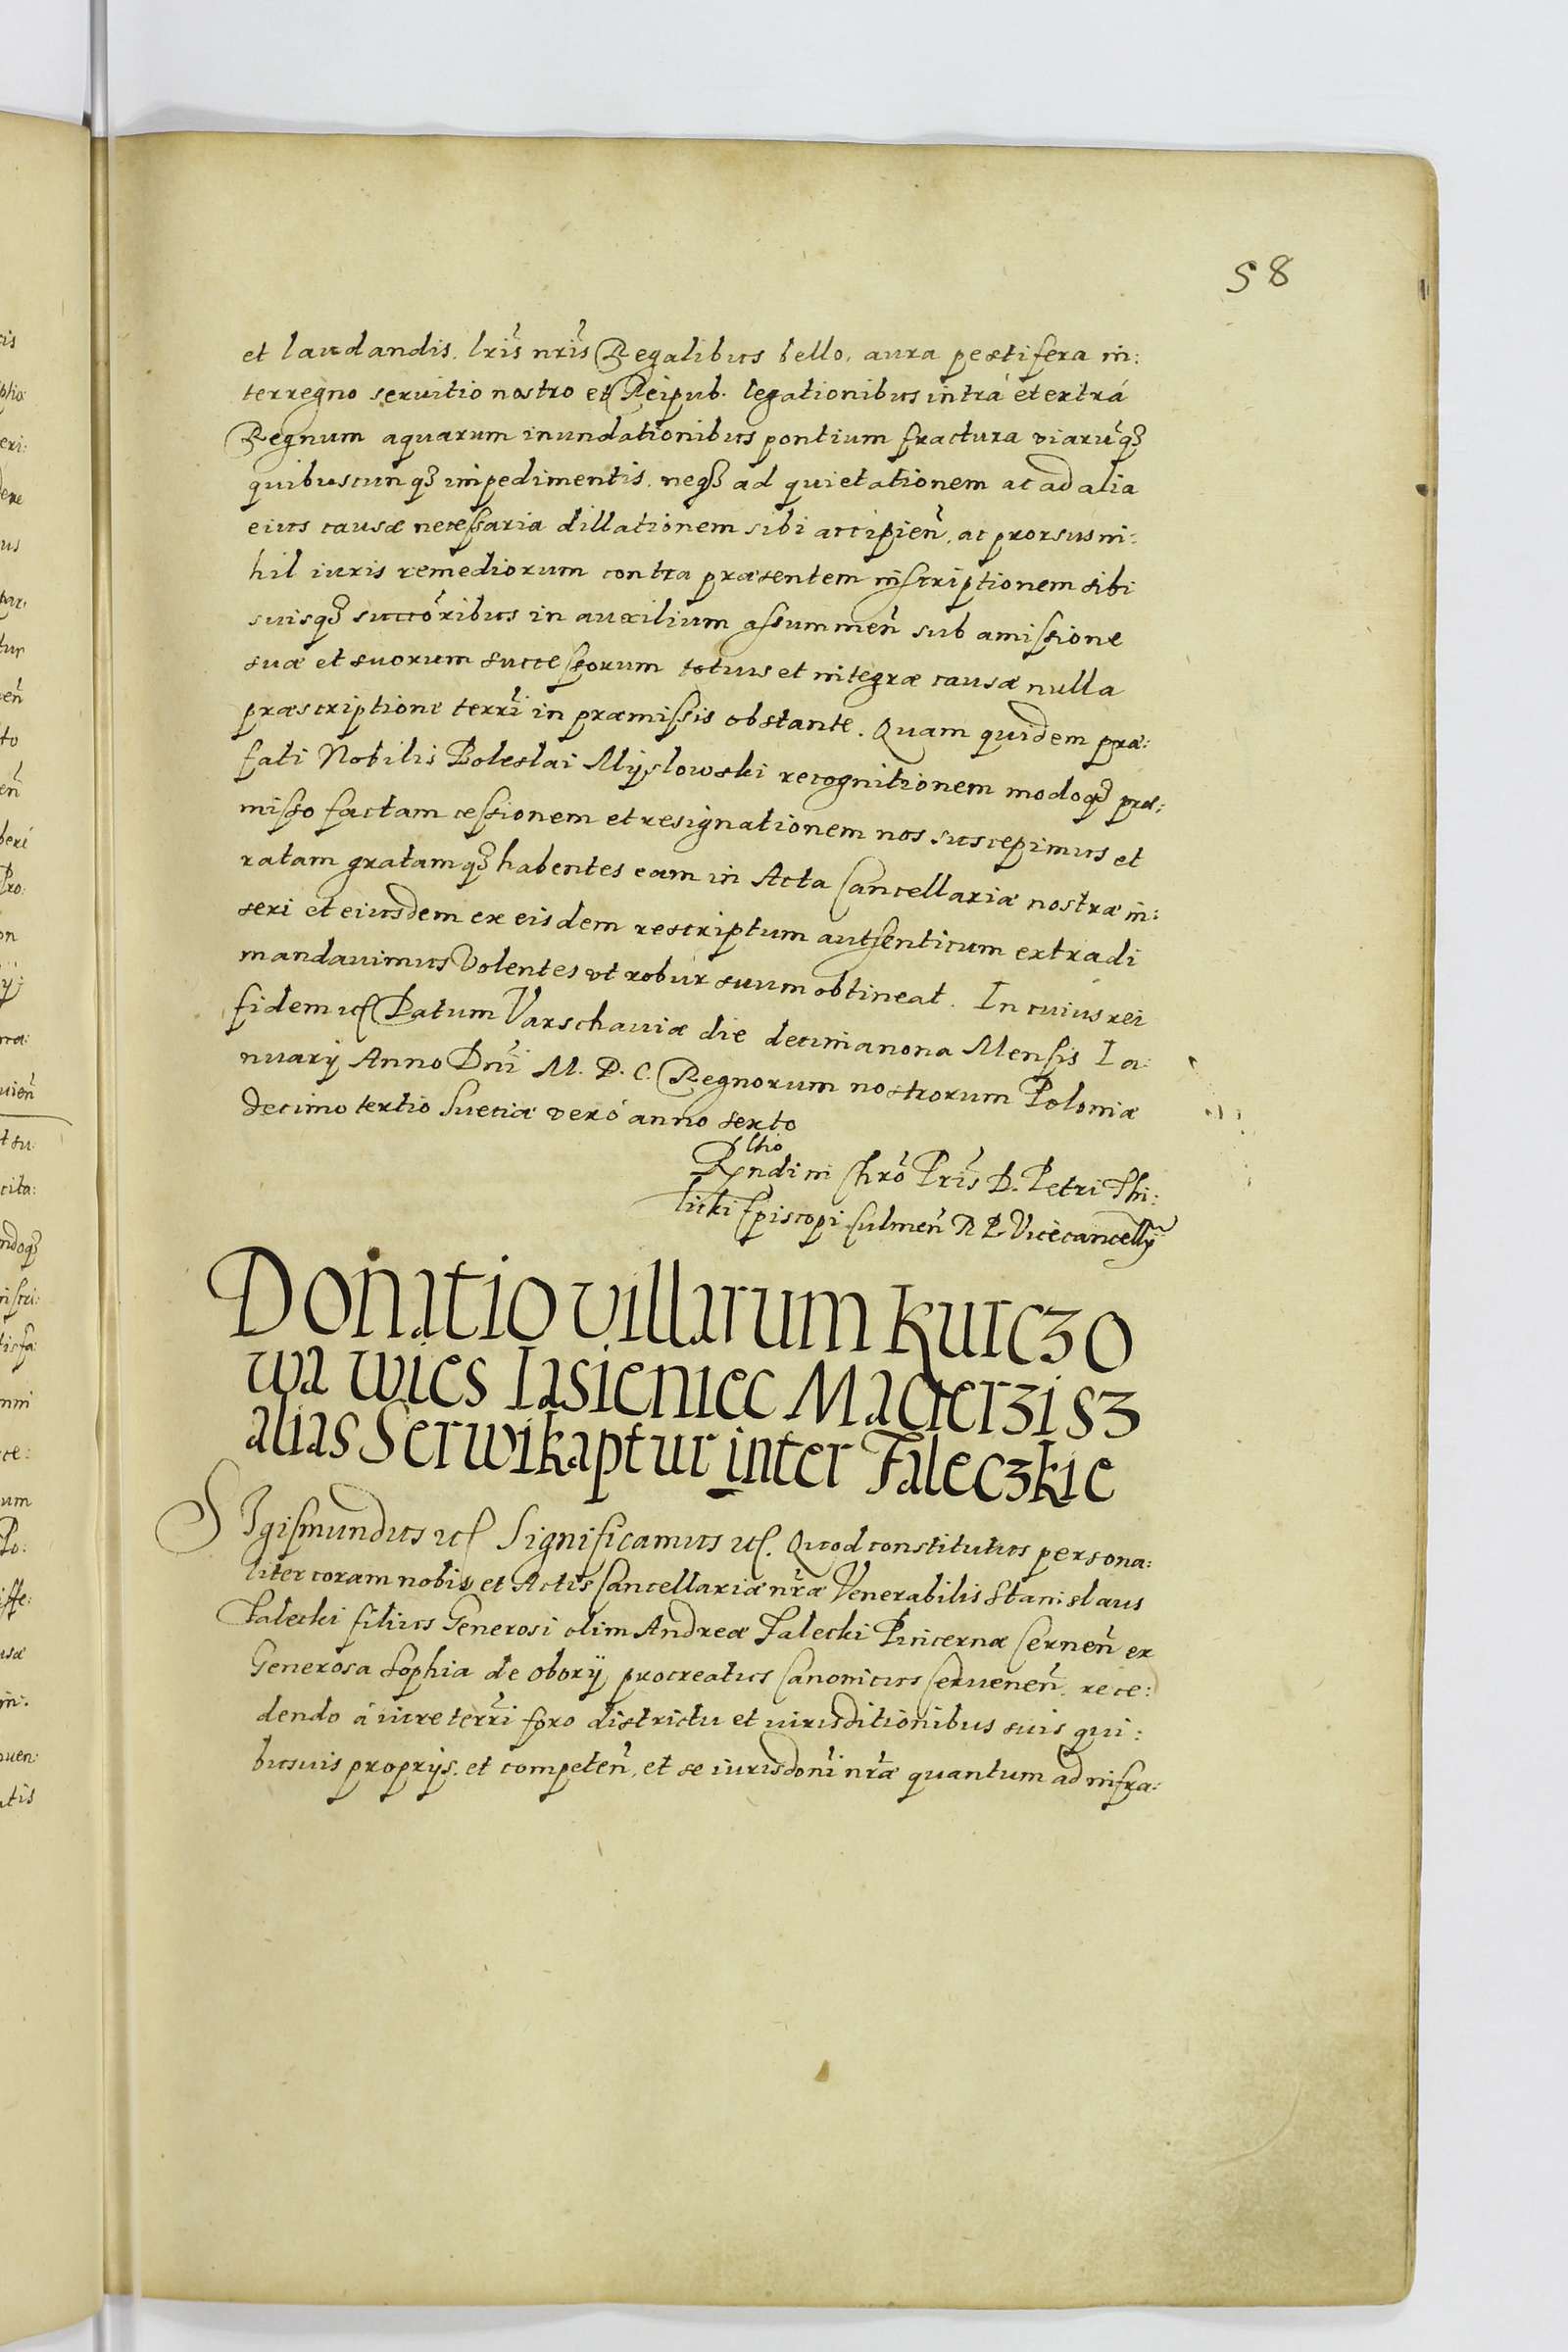 58
et laudandis. lris nris Regalibus bello, aura pestifera in:
terregno seruitio nostro et Reipub. legationibus intrá et extrá
Regnum aquarum inundationibus pontium fractura viarūq3
quibuscunq3 impedimentis. neq3 ad quietationem ac ad alia
eius causæ necessaria dillationem sibi accipien̄. ac prorsus ni:
hil iuris remediorum contra præsentem inscriptionem sibi
suisq3 succōribus in auxilium assummen̄ sub amissione
suæ et suorum successorum totius et integræ causæ nulla
præscriptione terrī in præmissis obstante. Quam quidem præ:
fati Nobilis Boleslai Mÿslowski recognitionem modoq3 præ:
misso factam cessionem et resignationem nos suscepimus et
ratam gratamq3 habentes eam in Acta Cancellariæ nostræ in:
seri et eiusdem ex eisdem rescriptum autsenticum extradi
mandauimus Volentes vt robur suum obtineat. In cuius rei
fidem etc Datum Varschauiæ die decimanona Mensis Ia:
nuarÿ Anno Dnī M. D. C. Regnorum nostrorum Poloniæ
decimo tertio Sueciæ veró anno sexto
Rltio
Rndi in Chrō Pris D. Petri Thi:
licki Episcopi Culmen̄ R P Vicecancellÿ
Donatio villarum Kurczo
wa wies Iasieniec Macierzisz
alias Serwikaptur inter Faleczkie
SIgismundus etc Significamus etc. Quod constitutus persona:
liter coram nobis et Actis Cancellariæ nr̄æ Venerabilis Stanislaus
Falecki filius Generosi olim Andreæ Falecki Pincernæ Cernen̄ ex
Generosa Sophia de oborÿ procreatus Canonicus Cervenen̄. rece:
dendo á iure terrī foro districtu et iurisditionibus suis qui:
busuis proprÿs. et competen̄, et se iurisdonī nr̄æ quantum ad infra: